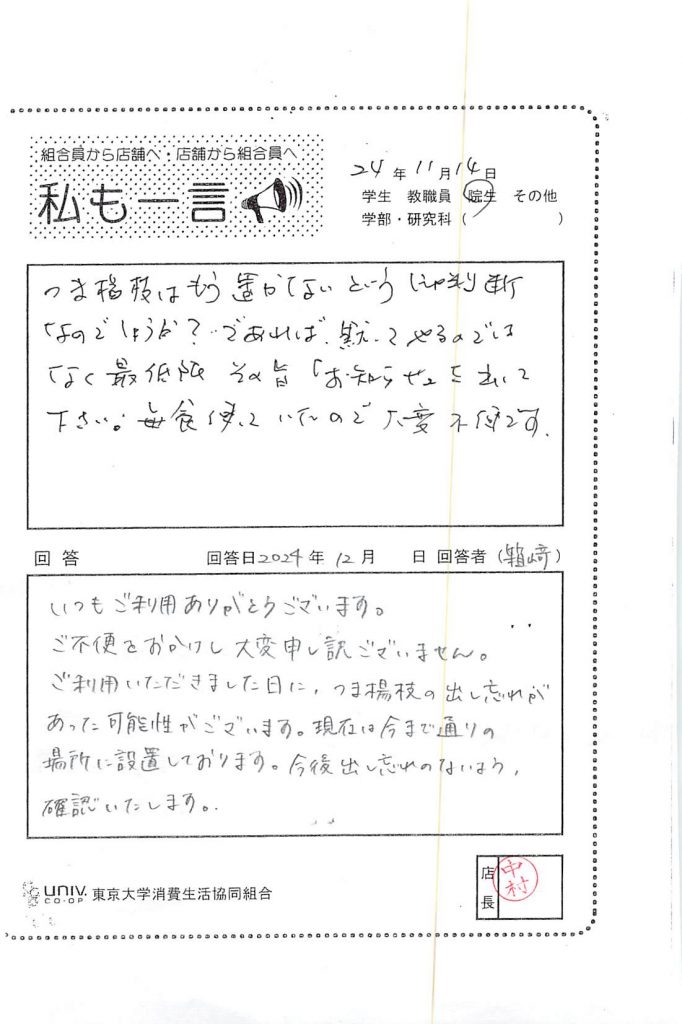 組合員から店舗へ・店舗から組合員へ
私も一言
24年11月14日
学生 教職員 院生 その他
学部・研究科( )
つま楊枝はもう置かないというご判断
なのでしょうか?であれば、黙ってやるのでは
なく最低限その旨「お知らせ」を出して
下さい。毎食使っていたので大変不便です。
回答 回答日2024年12月 日 回答者(箱﨑)
いつもご利用ありがとうございます。
ご不便をおかけし大変申し訳ございません。
ご利用いただきました日に、つま楊枝の出し忘れが
あった可能性がございます。現在は今まで通りの
場所に設置しております。今後出し忘れのないよう、
確認いたします。
UNIV. CO-OP 東京大学消費生活協同組合
店長 中村